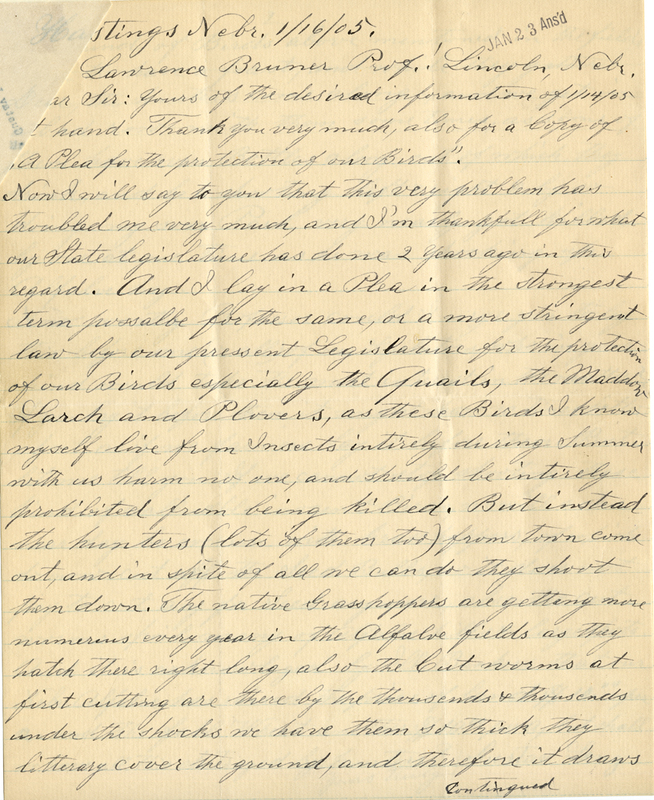 stings Nebr. 1/16/05.
JAN 23 Ans'd
Lawrence Bruner Prof.! Lincoln, Nebr.
ar Sir: Yours of the desired information of 1/14/05
t hand. Thank you very much, also for a Copy of
"A Plea for the protection of our Birds".
Now I will say to you that this very problem has
troubled me very much, and I'm thankfull for what
our State legislature has done 2 Years ago in this
regard. And I lay in a Plea in the strongest
term possalbe for the same, or a more stringent
law by our pressent Legislature for the protection
of our Birds especially the Quails, the Maddow
Larch and Plovers, as these Birds I know
myself live from Insects intirely during Summer
with us harm no one, and should be intirely
prohibited from being killed. But instead
the hunters (lots of them too) from town come
out, and in spite of all we can do they shoot
them down. The native Grasshoppers are getting more
numerus every year in the Alfalve fields as they
hatch there right long, also the Cut worms at
first cutting are there by the thousends & thousends
under the shocks we have them so thick they
litterary cover the ground, and therefore it draws
Contingued